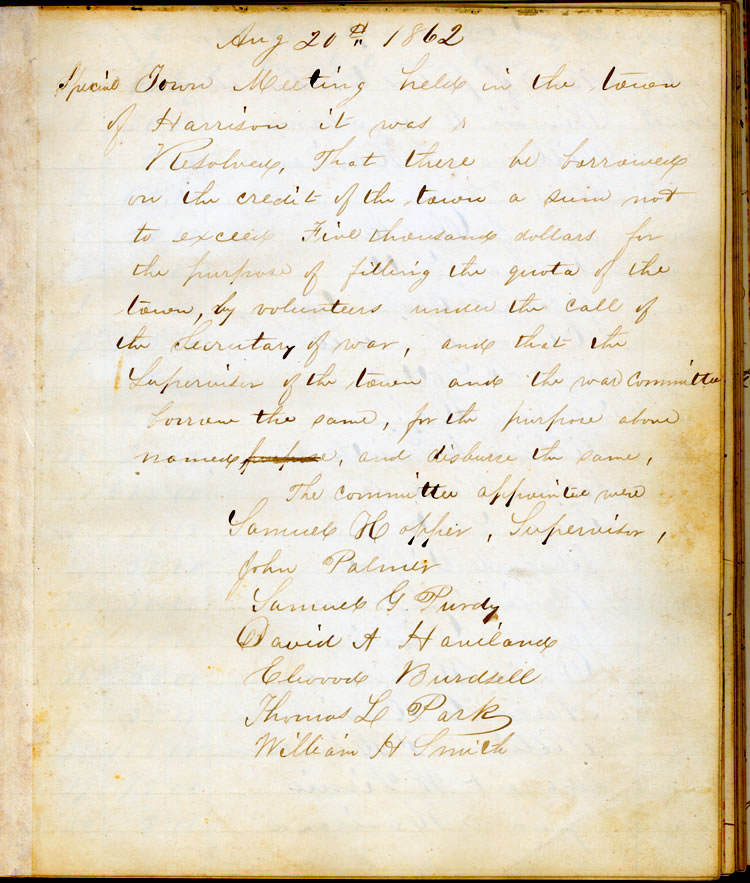 Aug 20th 1862
Special Town Meeting held in the town
of Harrison it was
Resolved, That there be borrowed
on the credit of the town a sum not
to exceed Five thousand dollars for
the purpose of filling the quota of the
town, by volunteers under the call of
the Secrutary of war, and that the
Supervisor of the town and the war committee
borrow the same, for the purpose above
named purpose, and disburse the same,
The committee appointee were
Samuel Hopper, Supervisor,
John Palmer
Samuel G. Purdy
David A Haviland
Elwood Burdsell
Thomas L Park
William H Smith